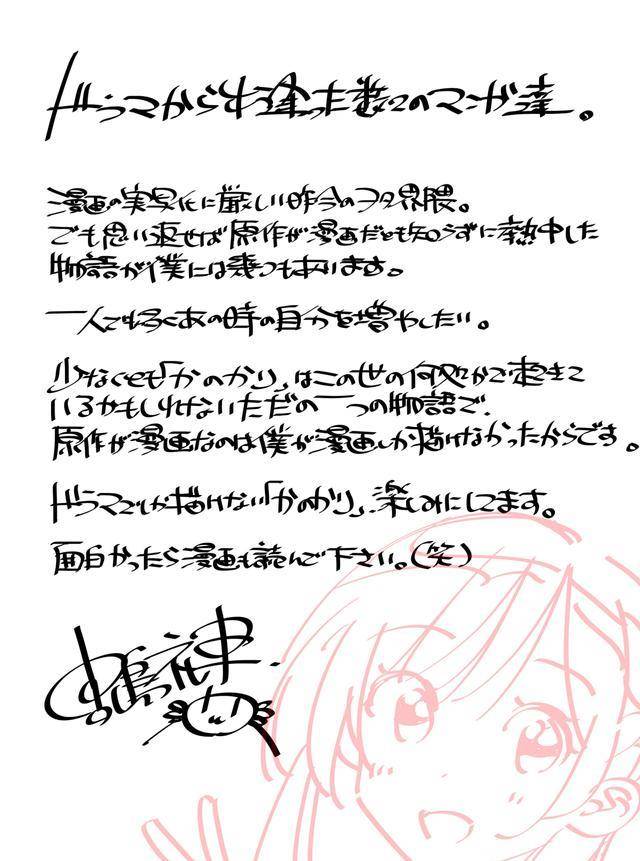 ドラマから出逢った数々のマンガ達。
漫画の実写化に厳しい昨今のヲタ界隈。
でも思い返せば原作が漫画だとも知らずに熱中した
物語が僕には幾つもあります。
一人でも多くあの時の自分を増やしたい。
少なくとも「かのかり」はこの世の何処かで起きて
いるかもしれないただの一つの物語で、
原作が漫画なのは僕が漫画しか描けなかったからです。
ドラマでしか描けない「かのかり」、楽しみにしてます。
面白かったら漫画も読んで下さい。(笑)